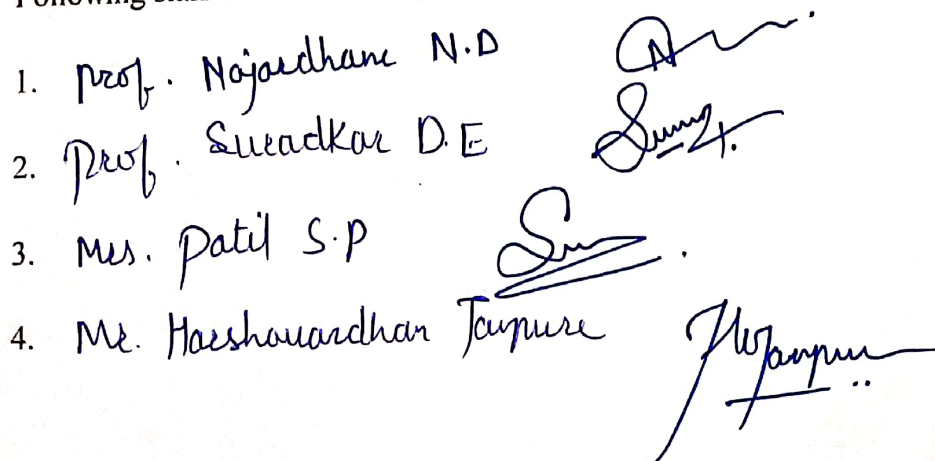 Following
1. Prof. Najardhane N.D
2. Prof. Suradkar D.E
3. Mrs. Patil S.P
4. Mr. Harshavardhan Jaypure